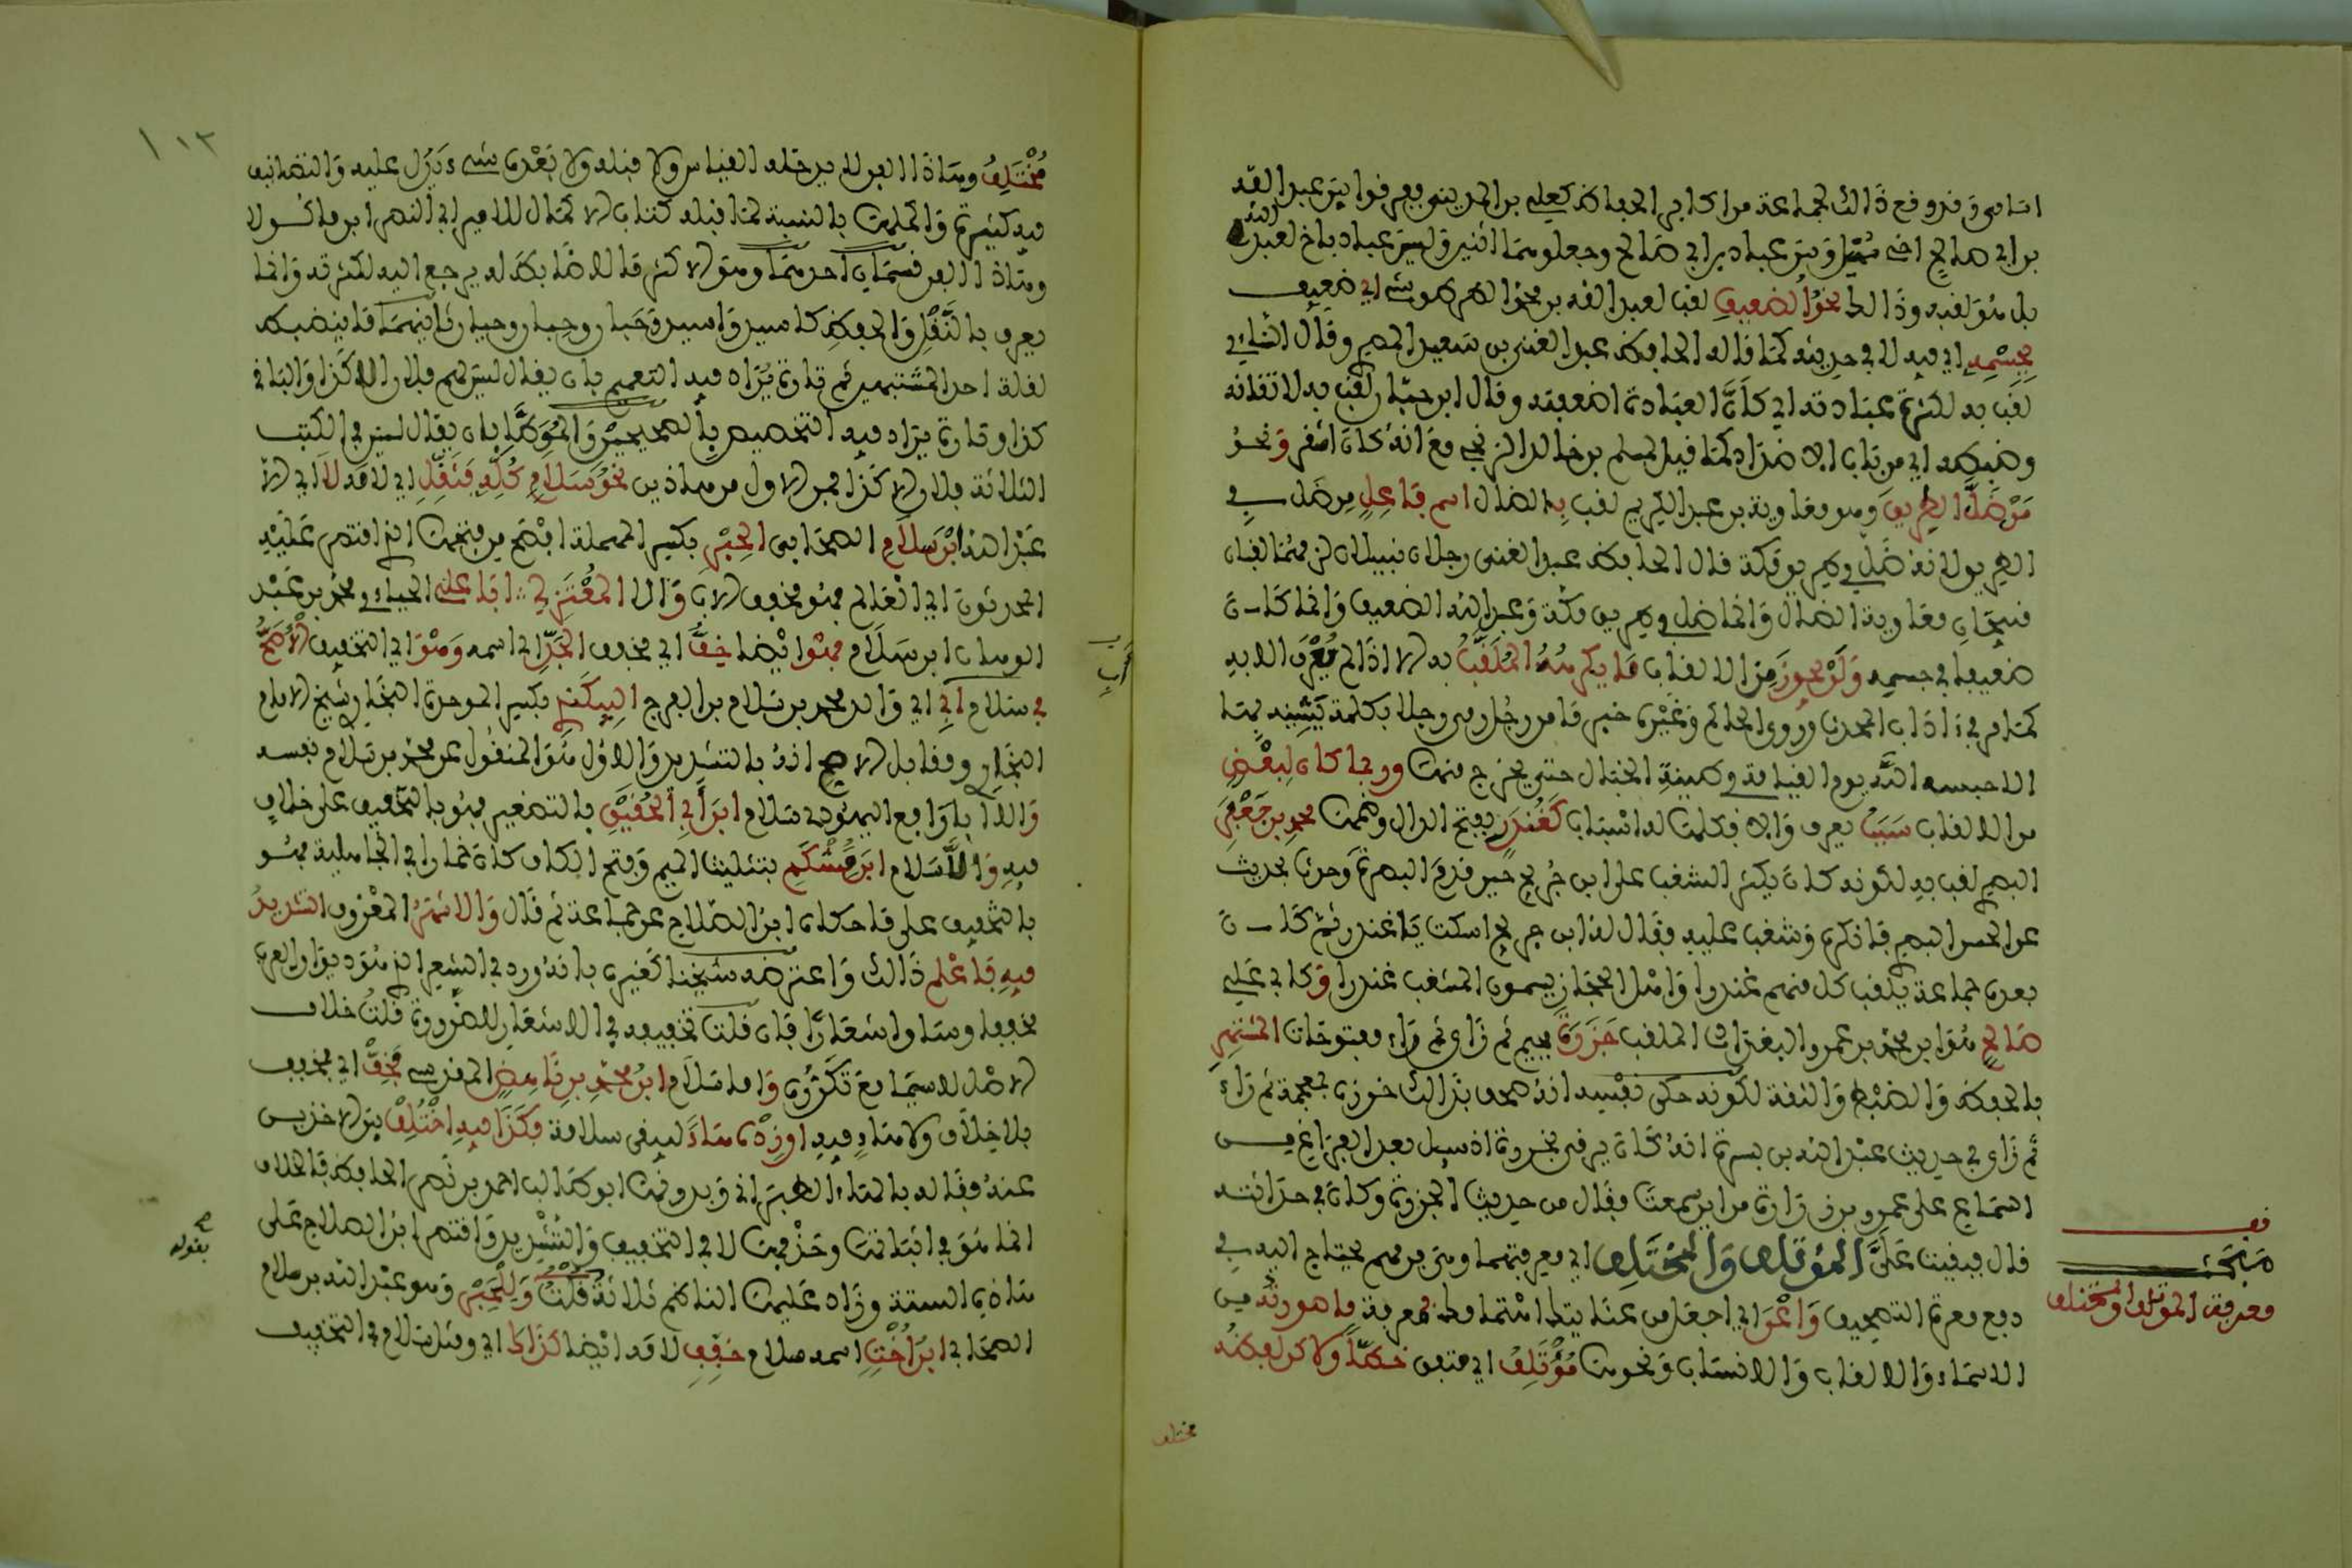 اسامي وقد وقع ذالك لجماعة من اكابر الحفاظ كعلي بن المديني ففرقوا بين عبد الله
بن ابي صالح اخي سهيل وبين عباد بن ابي صالح وجعلوهما اثنين وليس عباد باخ لعبد الله
بل هو لقبه وذالك نحو الضعيف لقب لعبد الله بن محمد الطرسوسي اي ضعيف
بجسمه اي فيه لا في حديثه كما قاله الحافظ عبد الغني بن سعيد المصري وقال النساءي
لقب به لكثرة عبادته اي كان العبادة اضعفته وقال ابن حبان لقب به لاتقانه
وضبطه اي من باب الاضداد كما قيل لمسلم بن خالد الزنجي مع انه كان اشقر ونحو
من ضل الطريق وهو معاوية بن عبد الكريم لقب بالضال اسم فاعل من ضل في
الطريق لانه ضل في طريق مكة قال الحافظ عبد الغني رجلان نبيلان لزمهما لقبان
قبيحان معاوية الضال وانما ضل في طريق مكة وعبد الله الضعيف وانما كان
ضعيفا في جسمه ولن يجوز من الالقاب ما يكرهه الملقب به الا اذا لم يعرف الا به
كما مر في اداب المحدث وروى الحاكم وغيره خبر ما من رجل رمى رجلا بكلمة يشينه بها
الا حبسه الله يوم القيامة في طينة الخبال حتى يخرج منها وربما كان لبعض
من الالقاب سبب يعرف والا فكلها له اسباب كغندر بفتح الدال وضمها محمد بن جعفر
البصري لقب به لكونه كان يكثر الشغب على ابن جريج حين قدم البصرة وحدث بحديث
عن الحسن البصري فانكره وشغب عليه فقال له ابن جريج اسكت يا غندر ثم كان
بعده جماعة يلقب كل منهم غندرا واهل الحجاز يسمون المشغب غندرا وكابي علي
صالح هو ابن محمد بن عمرو البغدادي الملقب جزرة بجيم ثم زاي ثم راء مفتوحات المشتهر
بالحفظ والضبط والثقة لكونه حكى نفسه انه صحف بذالك خرزة بمعجمة ثم راء
ثم زاي في حديث عبد الله بن بسر انه كان يرقي بخرزة اذ سيل بعد الفراغ من
السماع على عمرو بن زرارة من اين سمعت فقال من حديث الجزرة وكان في حداثته
قال فبقيت علي المؤتلف والمختلف اي معرفتهما وهي من مهم يحتاج اليه في
دفع معرة التصحيف واعن اي اجعل من عنايتك اهتمامك بمعرفة ما صورته من
الاسماء والالقاب والانساب ونحوها مؤتلف اي متفق خطا ولاكن لفظه
مختلف
قف
مبحث
معرفة المؤتلف والمختلف
١١٣
مختلف وهذا الفن لا يدخله القياس ولا قبله ولا بعده شيء يدل عليه والتصانيف
فيه كثيرة واكملها بالنسبة لما قبله كتاب الاكمال للامير ابي النصر ابن ماكولا
وهذا الفن قسمان احدهما وهو الاكثر ما لا ضابط له يرجع اليه لكثرته وانما
يعرف بالنقل والحفظ كاسيد واسيد وحبان وحبان وحيان ثانيهما ما ينضبط
لقلة احد المشتبهين ثم تارة يراد فيه التعميم بان يقال ليس لهم فلان الا كذا والباقي
كذا وتارة يراد فيه التخصيص بالصحيحين والموطا بان يقال ليس في الكتب
الثلاثة فلان الا كذا فمن الاول من هاذين نحو سلام كله فثقل اي لامه لا ابي الا
عبد الله ابن سلام الصحابي الحبر بكسر المهملة افصح من فتحها الذي اقتصر عليه
المحدثون اي العالم فهو مخفف الاب وال المعتزلي ابا علي الجبائي محمد بن عبد
الوهاب ابن سلام فهو ايضا خف اي مخفف الجد اي اسمه وهو اي التخفيف الاصح
في سلام ابي اي والد محمد بن سلام بن الفرج البيكندي بكسر الموحدة البخاري شيخ الامام
البخاري ومقابل الاصح انه بالتشديد والاول هو المنقول عن محمد بن سلام نفسه
والا ابا رافع اليهودي سلام ابن ابي الحقيق بالتصغير فهو بالتخفيف على خلاف
فيه والا سلام ابن مشكم بتثليث الميم وفتح الكاف كان خمارا في الجاهلية فهو
بالتخفيف على ما حكاه ابن الصلاح عن جماعة ثم قال والاشهر المعروف التشديد
فيه فاعلم ذالك واعترضه شيخنا كغيره بانه ورد في الشعر الذي هو ديوان العرب
مخففا وساق اشعارا فان قلت تخفيفه في الاشعار للضرورة قلت خلاف
الاصل لا سيما مع تكرره واما سلام ابن محمد بن ناهض المقدسي فخف اي مخفف
بلا خلاف ولا هاء فيه او زده هاء ليبقى سلامة فكذا فيه اختلف بين الاخذين
عنه فقاله بالهاء الطبراني وبدونها ابو طالب احمد بن نصر الحافظ فالخلاف
انما هو في اثباتها وحذفها لا في التخفيف والتشديد واقتصر ابن الصلاح على
هاذه الستة وزاد عليها الناظم ثلاثة قلت وللحبر وهو عبد الله بن سلام
الصحابي ابن اخت اسمه سلام خفف لامه ايضا كذاك اي ومثل سلام في التخفيف
صح
بقوله